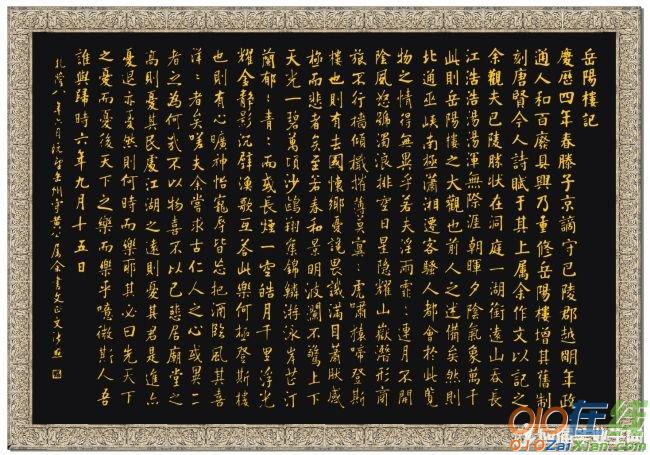 岳陽樓記
慶歷四年春滕子京謫守巴陵郡越明年政
通人和百廢具興乃重修岳陽樓增其舊制
刻唐賢今人詩賦于其上属余作文以記之
余觀夫巴陵勝狀在洞庭一湖銜遠山吞長
江浩浩湯湯渾無際涯朝暉夕陰氣象萬千
此則岳陽樓之大觀也前人之述備矣然則
北通巫峽南極瀟湘遷客騷人都會於此覽
物之情得無異乎若夫淫雨霏:連月不開
陰風怒號濁浪排空日星隱耀山嶽潛形商
旅不行檣傾楫摧薄暮冥:虎嘯猿啼登斯
樓也則有去國懷鄉憂讒畏譏滿目蕭然感
極而悲者矣至若春和景明波瀾不驚上下
天光一碧萬頃沙鷗翔集錦鱗游泳岸芷汀
蘭郁:青:而或長煙一空皓月千里浮光
耀金靜影沉璧漁歌互答此樂何極登斯樓
也則有心曠神怡寵辱皆忘把酒臨風其喜
洋:者矣嗟夫余嘗求古仁人之心或異二
者之為何哉不以物喜不以己悲居廟堂之
高則憂其民處江湖之遠則憂其君是進亦
憂退亦憂然則何時而樂耶其必曰先天下
之憂而憂後天下之樂而樂乎噫微斯人吾
誰與歸時六年九月十五日
010在线
010ZaiXian.com